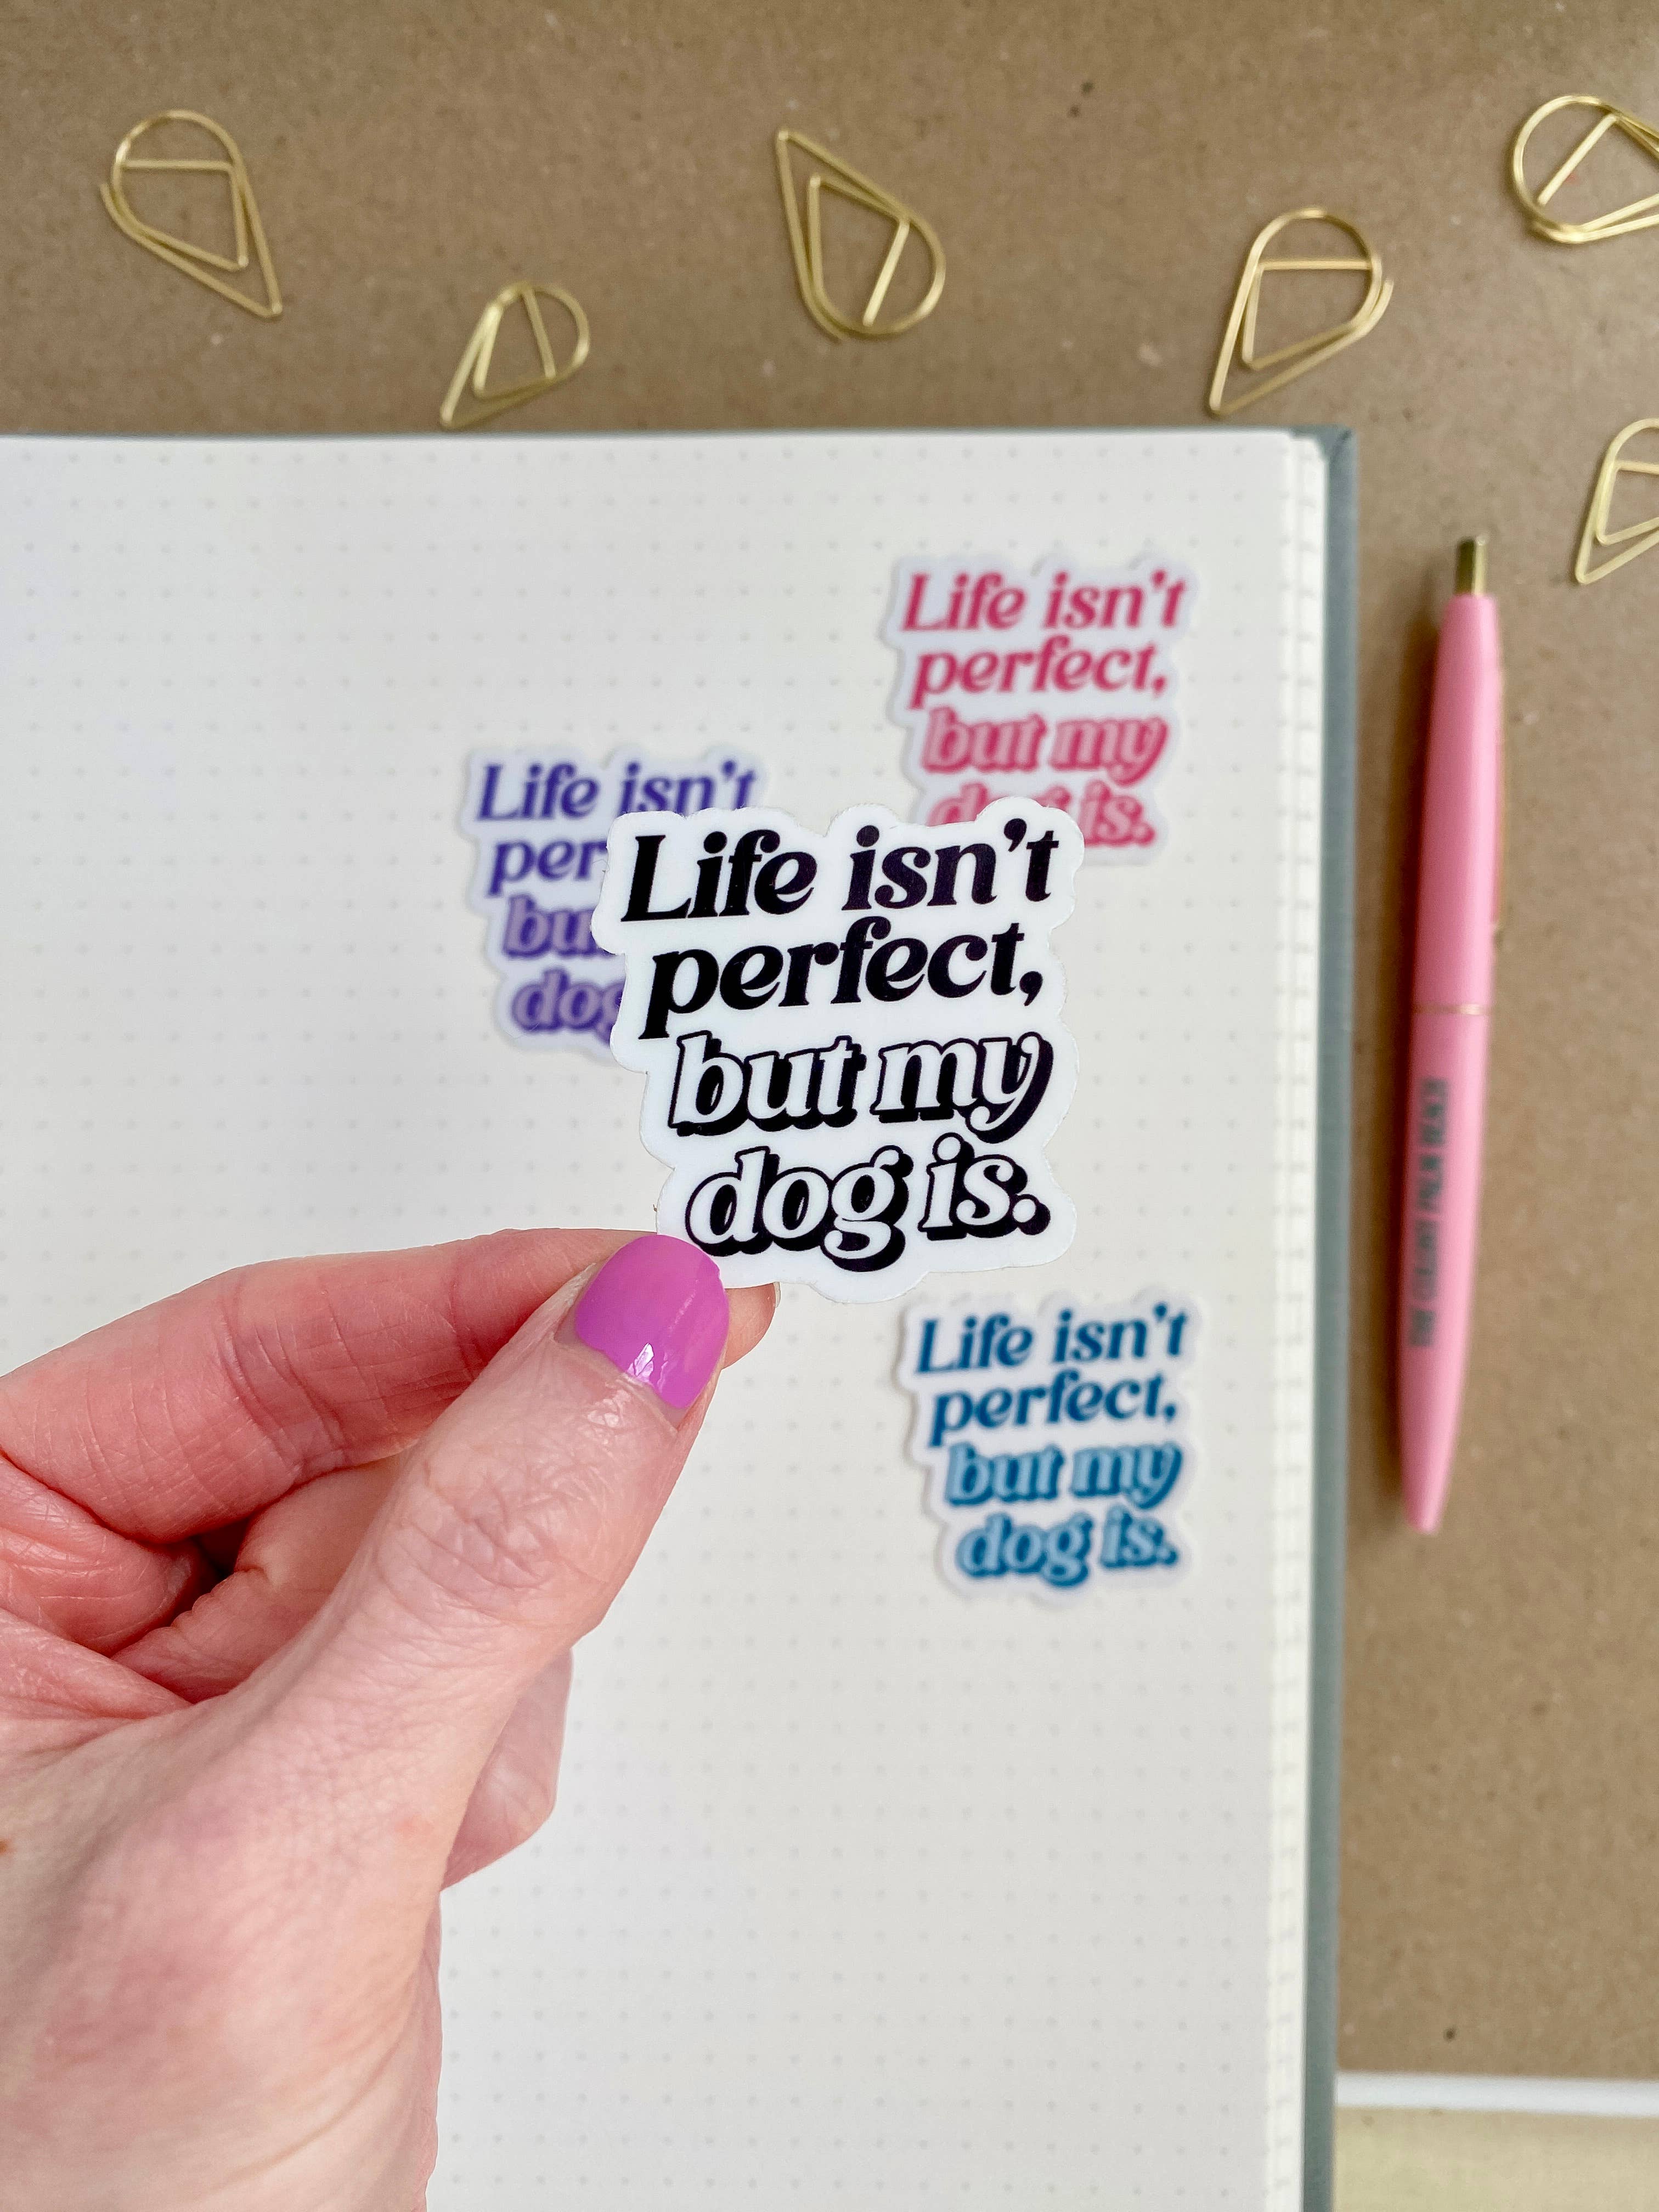 Life isn't
perfect,
but my
dog is.
Life isn't
per
bu
dog
Life isn't
perfect,
but my
dog is.
Life isn't
perfect,
but my
dog is.
THE COLONY PALM BEACH